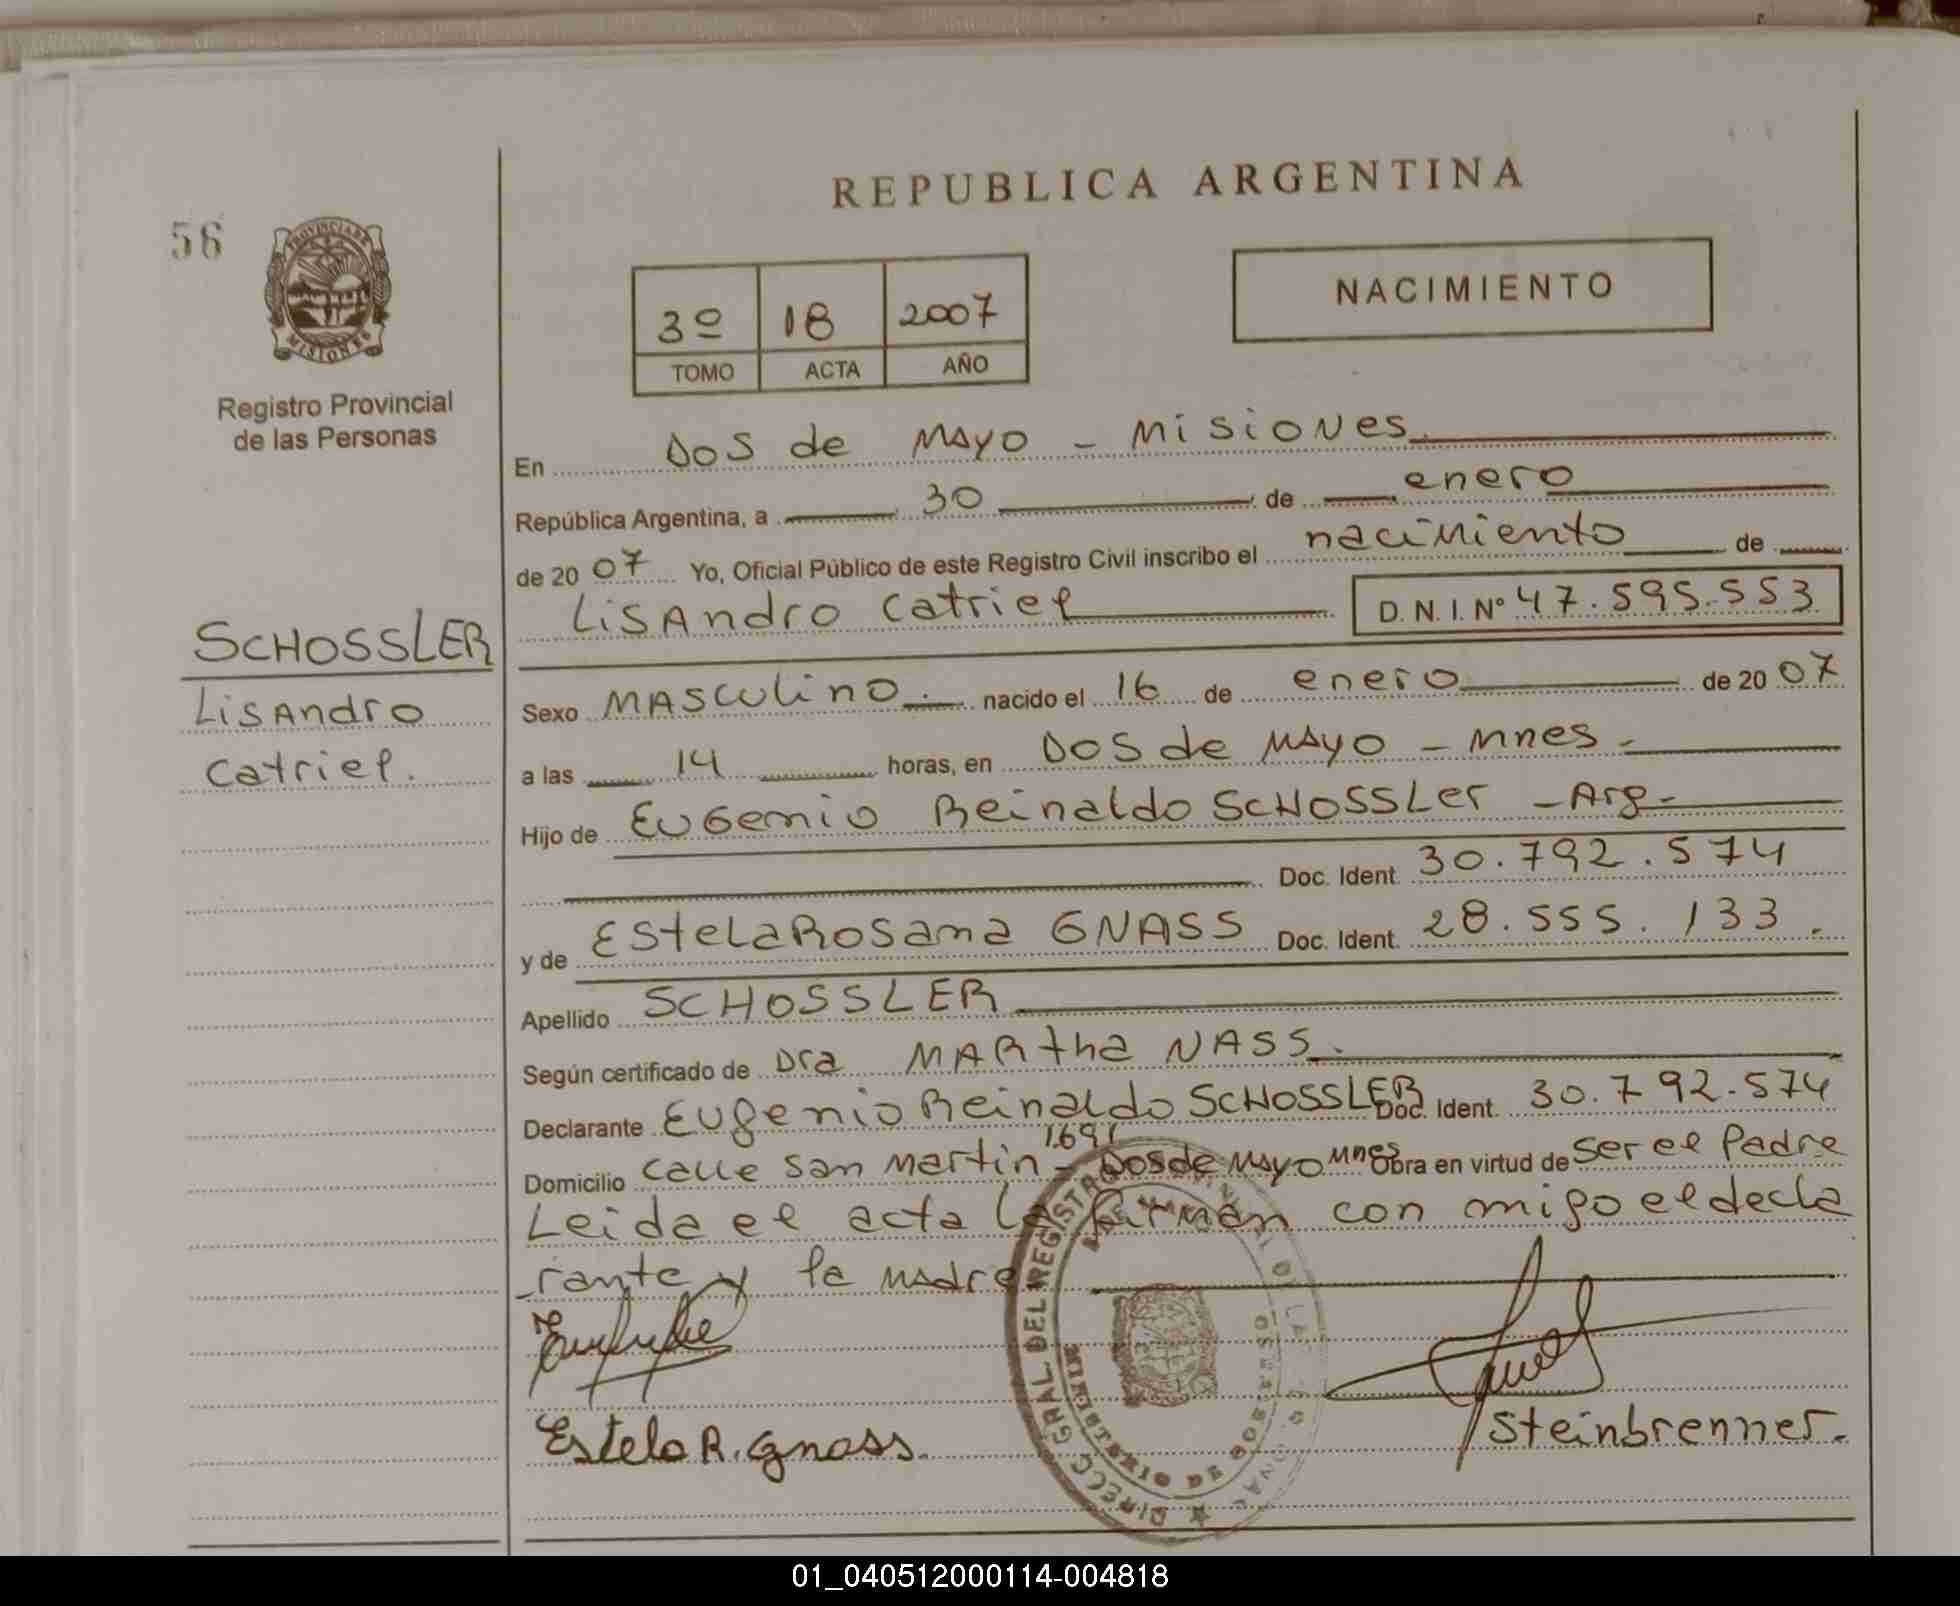 REPUBLICA ARGENTINA
56
PROVINCIA DE
MISIONES
Registro Provincial
de las Personas
3º 18 2007
TOMO ACTA AÑO
NACIMIENTO
En DOS de MAYO - MISIONES.
República Argentina, a 30 de enero
de 2007 Yo, Oficial Público de este Registro Civil inscribo el nacimiento de
LISAndro Catriel D. N. I. Nº 47.595.553
SCHOSSLER
LiSAndro
Catriel.
Sexo MASCulino. nacido el 16 de enero de 2007
a las 14 horas, en DOS de MAYO - Mnes -
Hijo de EUGenio Reinaldo SCHOSSLer - Arg -
Doc. Ident. 30.792.574
y de EStela Rosana GNASS Doc. Ident. 28.555.133.
Apellido SCHOSSLER
Según certificado de Dra MARtha NASS.
Declarante Eugenio Reinaldo SCHOSSLER Doc. Ident. 30.792.574
Domicilio Calle San Martin 1691 - Dos de Mayo Mnes Obra en virtud de Ser el Padre
Leida el acta la firman con migo el decla
rante y la madre
Estela R. Gnass.
Steinbrenner.
DIRECC GRAL. DEL REGISTRO PROVINCIAL DE LAS
01_040512000114-004818